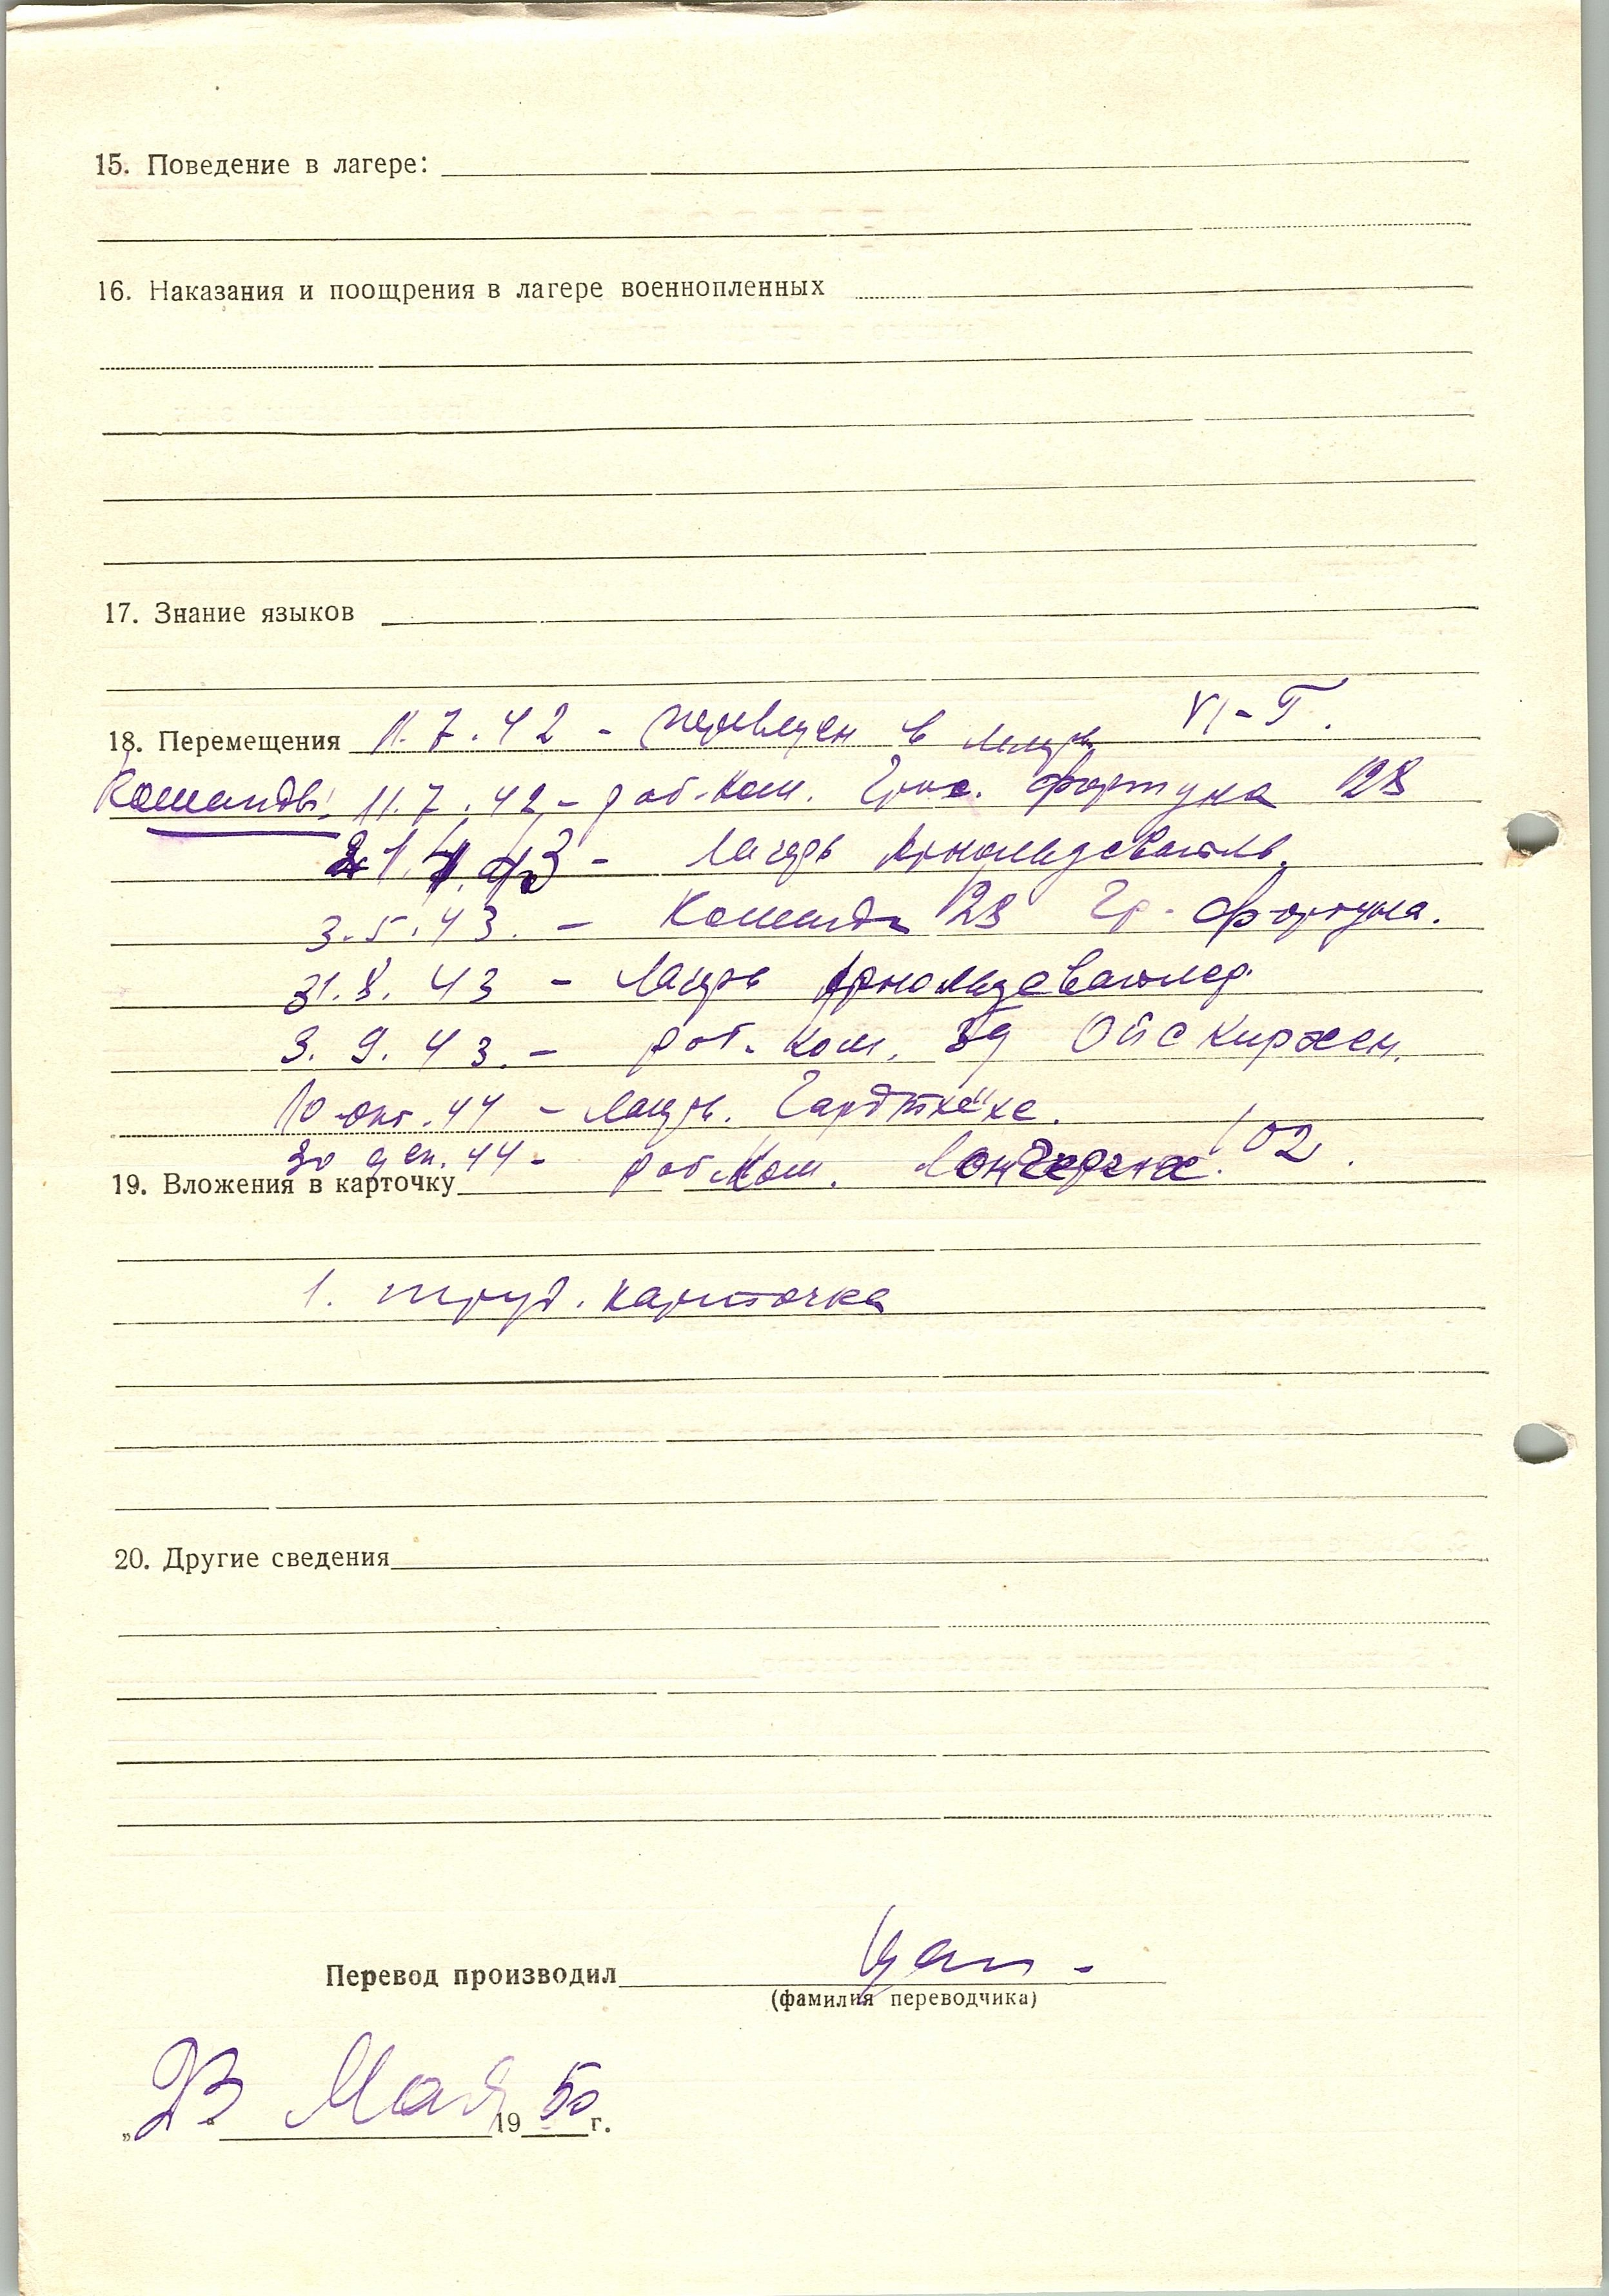 15. Поведение в лагере:
16. Наказания и поощрения в лагере военнопленных
17. Знание языков
18. Перемещения 11.7.42 - переведен в лагерь VI-Г.
Команды: 11.7.42 - раб.ком. Фортуна 128
21.4.43 - лагерь Арнольдсвайль.
3.5.43. - Команда 128 Гр. Фортуна.
31.8.43 - лагерь Арнольдсвайлер.
3.9.43. - раб. ком. Ойскирхен.
10 окт. 44 - лагерь.
30 дек. 44 - раб ком. 102.
19. Вложения в карточку
1. труд. карточка
20. Другие сведения
Перевод производил
(фамилия переводчика)
„23“ Мая 1950 г.